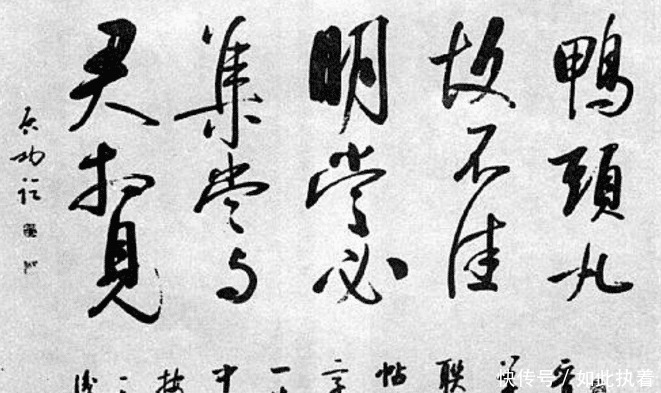 鴨頭丸
故不佳
明當必
集當与
君相見
启功
联
帖
快传号/如此执着